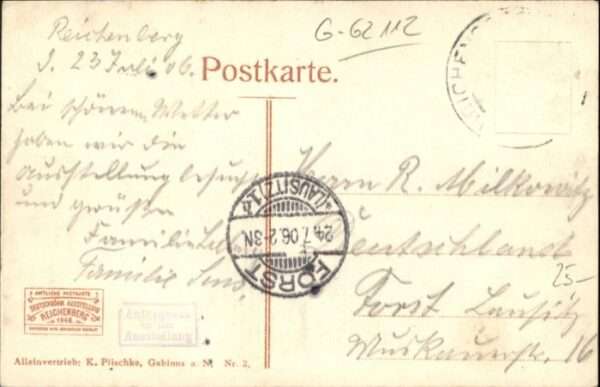 Reichenberg
d. 23 Juli 06.
G-62112
Postkarte.
REICHENB
Bei schönem Wetter
haben wir die
Ausstellung besucht
und grüßen
Familie
Familie
Herrn R. Milkowitz
Deutschland
Forst Lausitz
Muskauerstr. 16
25-
FORST
24.7.06.2-3N.
(LAUSITZ)1
AMTLICHE POSTKARTE
DEUTSCHBÖHM. AUSSTELLUNG
REICHENBERG
1906
Ausstellung
Alleinvertrieb: K. Plischke, Gablonz a. N. Nr. 2.